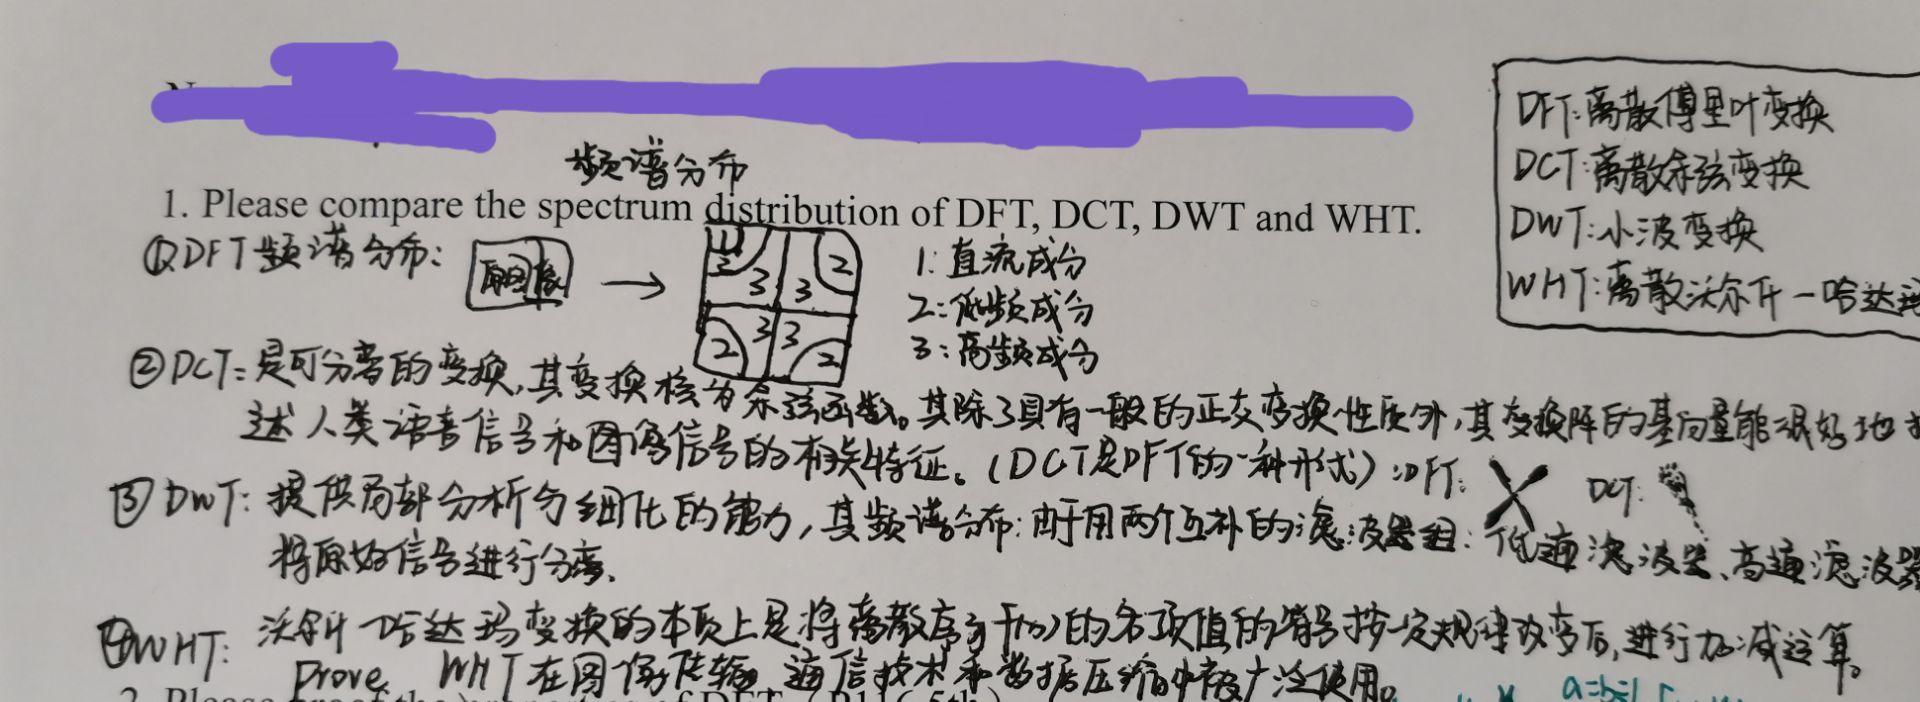 频谱分布
1. Please compare the spectrum distribution of DFT, DCT, DWT and WHT.
DFT:离散傅里叶变换
DCT:离散余弦变换
DWT:小波变换
WHT:离散沃尔什-哈达玛
①DFT频谱分布:
原图像
1 2 3 3 2
2 3 3 2
1:直流成分
2:低频成分
3:高频成分
②DCT:是可分离的变换,其变换核为余弦函数。其除了具有一般的正交变换性质外,其变换阵的基向量能很好地
述人类语音信号和图像信号的相关特征。(DCT是DFT的一种形式):DFT: DCT:
③DWT:提供局部分析与细化的能力,其频谱分布:由于用两个互补的滤波器组:低通滤波器、高通滤波器
将原始信号进行分离.
④WHT:沃尔什哈达玛变换的本质上是将离散序列f(n)的各项值的符号按一定规律改变后,进行加减运算。
Prove WHT在图像传输、通信技术和数据压缩中被广泛使用。
2. Please
a=b=1